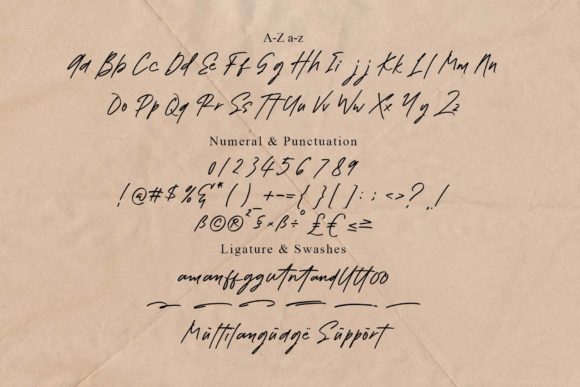 A-Z a-z
Aa Bb Cc Dd Ee Ff Gg Hh Ii Jj Kk Ll Mm Nn
Oo Pp Qq Rr Ss Tt Uu Vv Ww Xx Yy Zz
Numeral & Punctuation
0123456789
!@#$%&'*()+-={}[]:;<>?..!
ß©®²§×ß÷°£€≤≥
Ligature & Swashes
Mültilangüagë Süppört